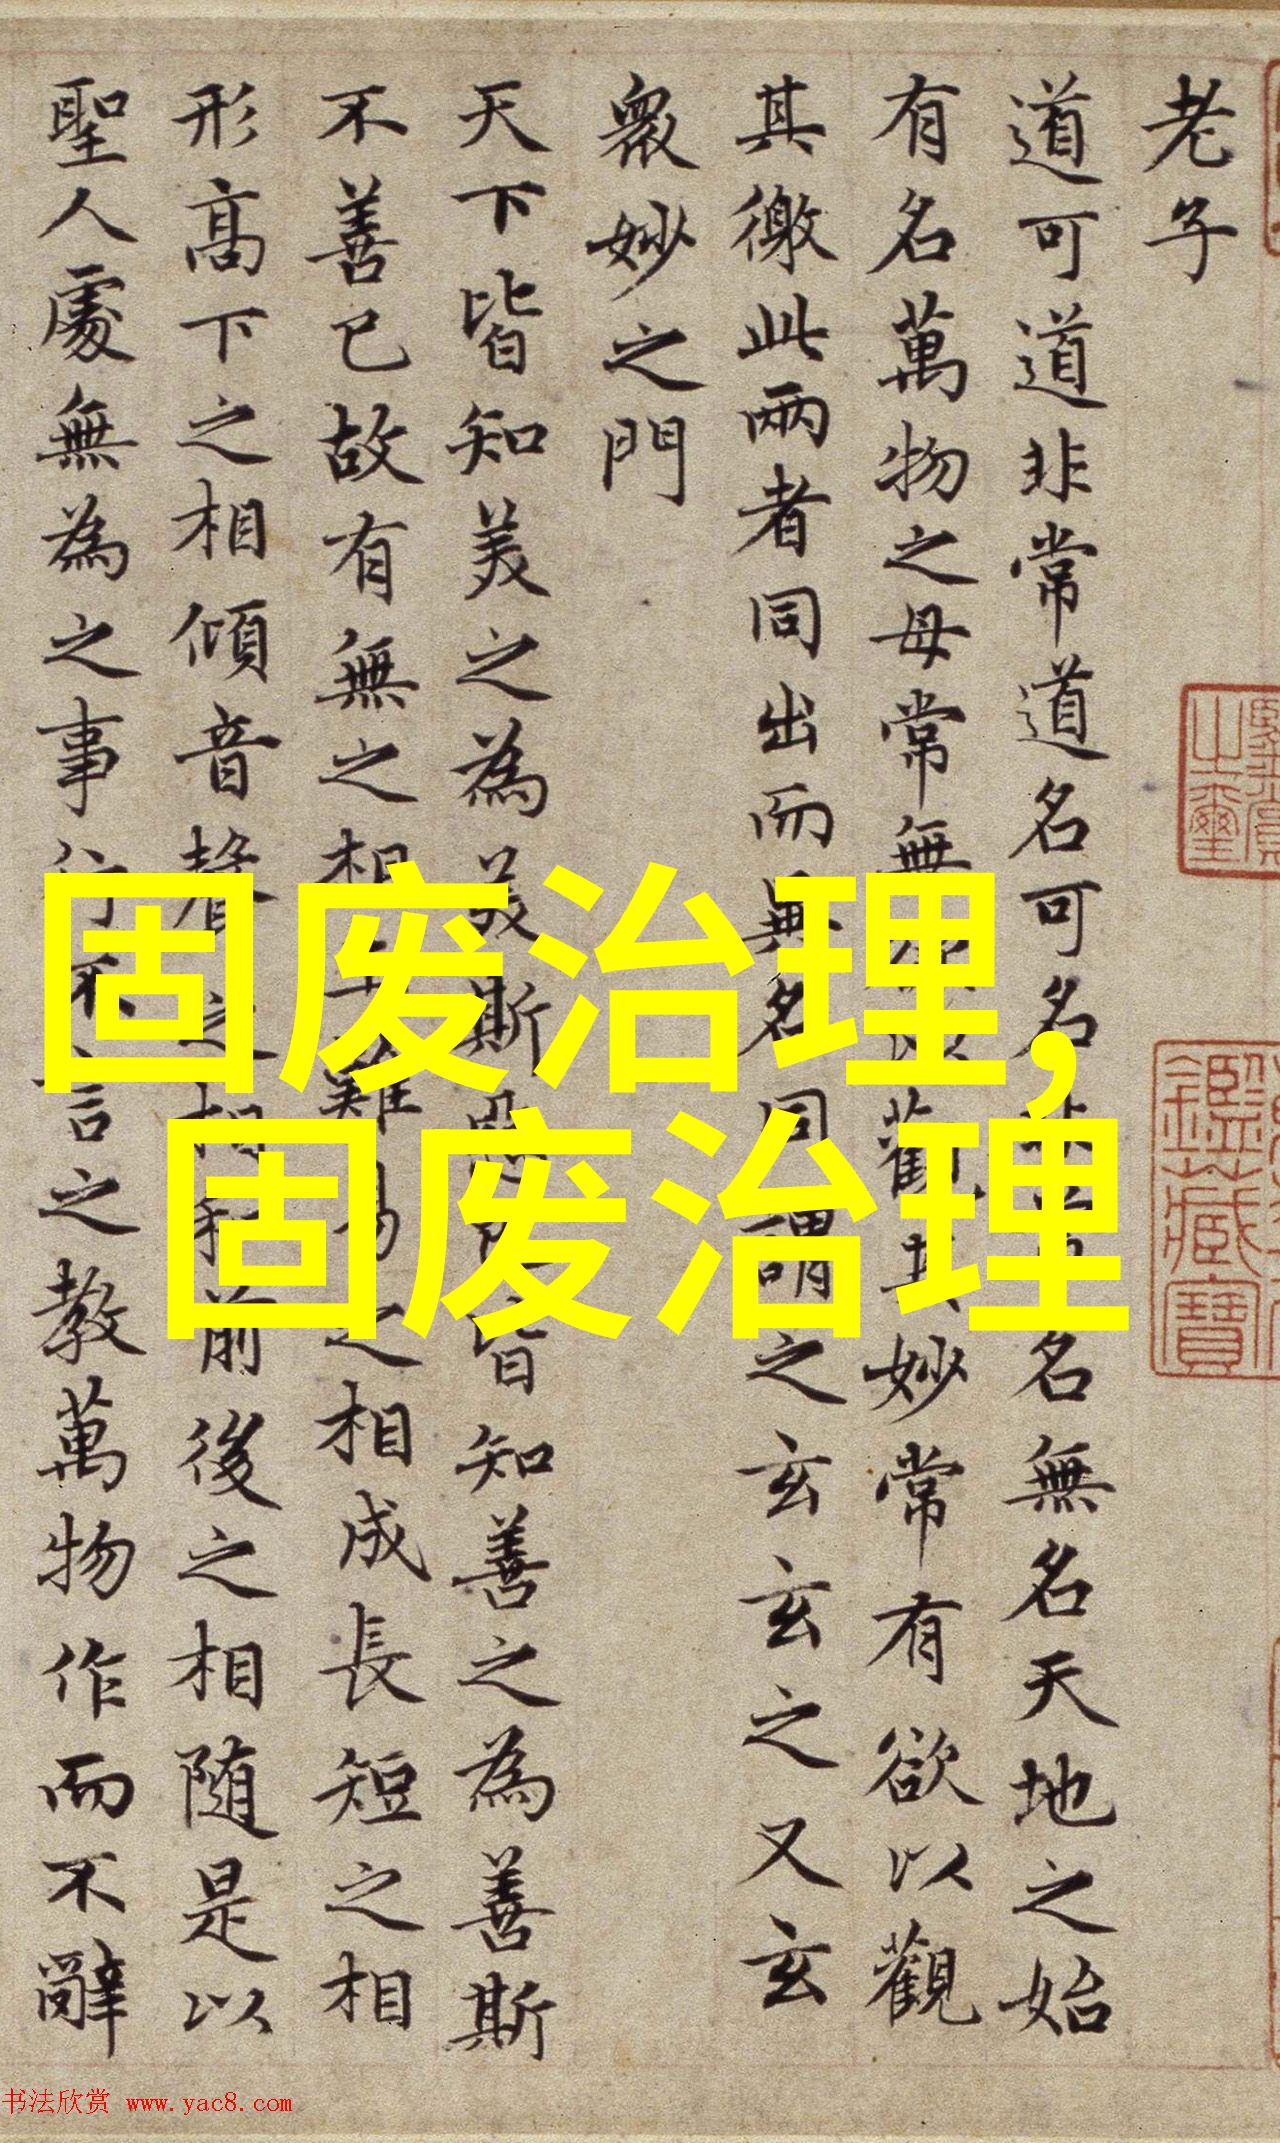 老子
道可道非常道名可名非常名無名天地之始
有名萬物之母常無欲以觀其妙常有欲以觀
其徼此兩者同出而異名同謂之玄玄之又玄
衆妙之門
天下皆知美之為美斯惡已皆知善之為善斯
不善已故有無之相生難易之相成長短之相
形高下之相傾音聲之相和前後之相随是以
聖人處無為之事行不言之教萬物作而不辭
固废治理,
固废治理
之璽
鑑藏寶
书法欣赏 www.yac8.com